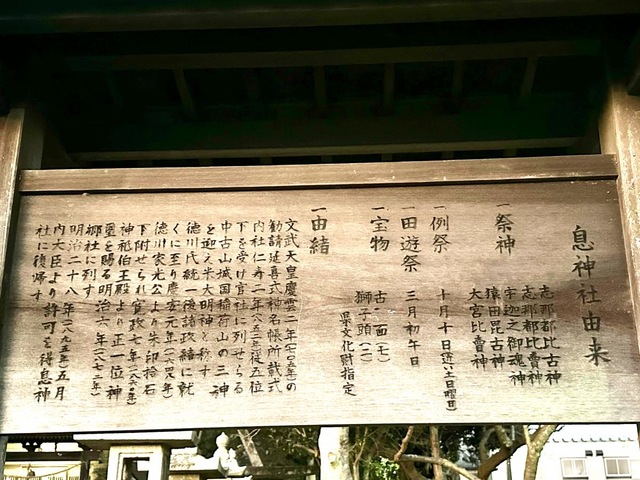 息神社由来
一祭神 志那都比古神
志那都比賣神
宇迦之御魂神
猿田昆古神
大宮比賣神
一例祭 十月十日(近い土日曜日)
一田遊祭 三月初午日
一宝物 古面(七)
獅子頭(一) 県文化財指定
一由緒
文武天皇慶雲二年(七〇五年)の
勧請延喜式神名帳所載式
内社仁寿二年(八五二)従五位
下を受け官社に列せらる
中古山城国稲荷山の三神
を迎え米大明神と称す
徳川氏統一後諸政緒に就
くに至り慶安元年(一六四八年)
徳川家光公より朱印拾石
下附せられ寛政七年(一八〇〇年)
神祇伯王殿より正一位神
璽を賜る明治六年(一八七三)
郷社に列す
明治二十八年(一八九五年)五月
内大臣より許可を得息神
社に復帰す